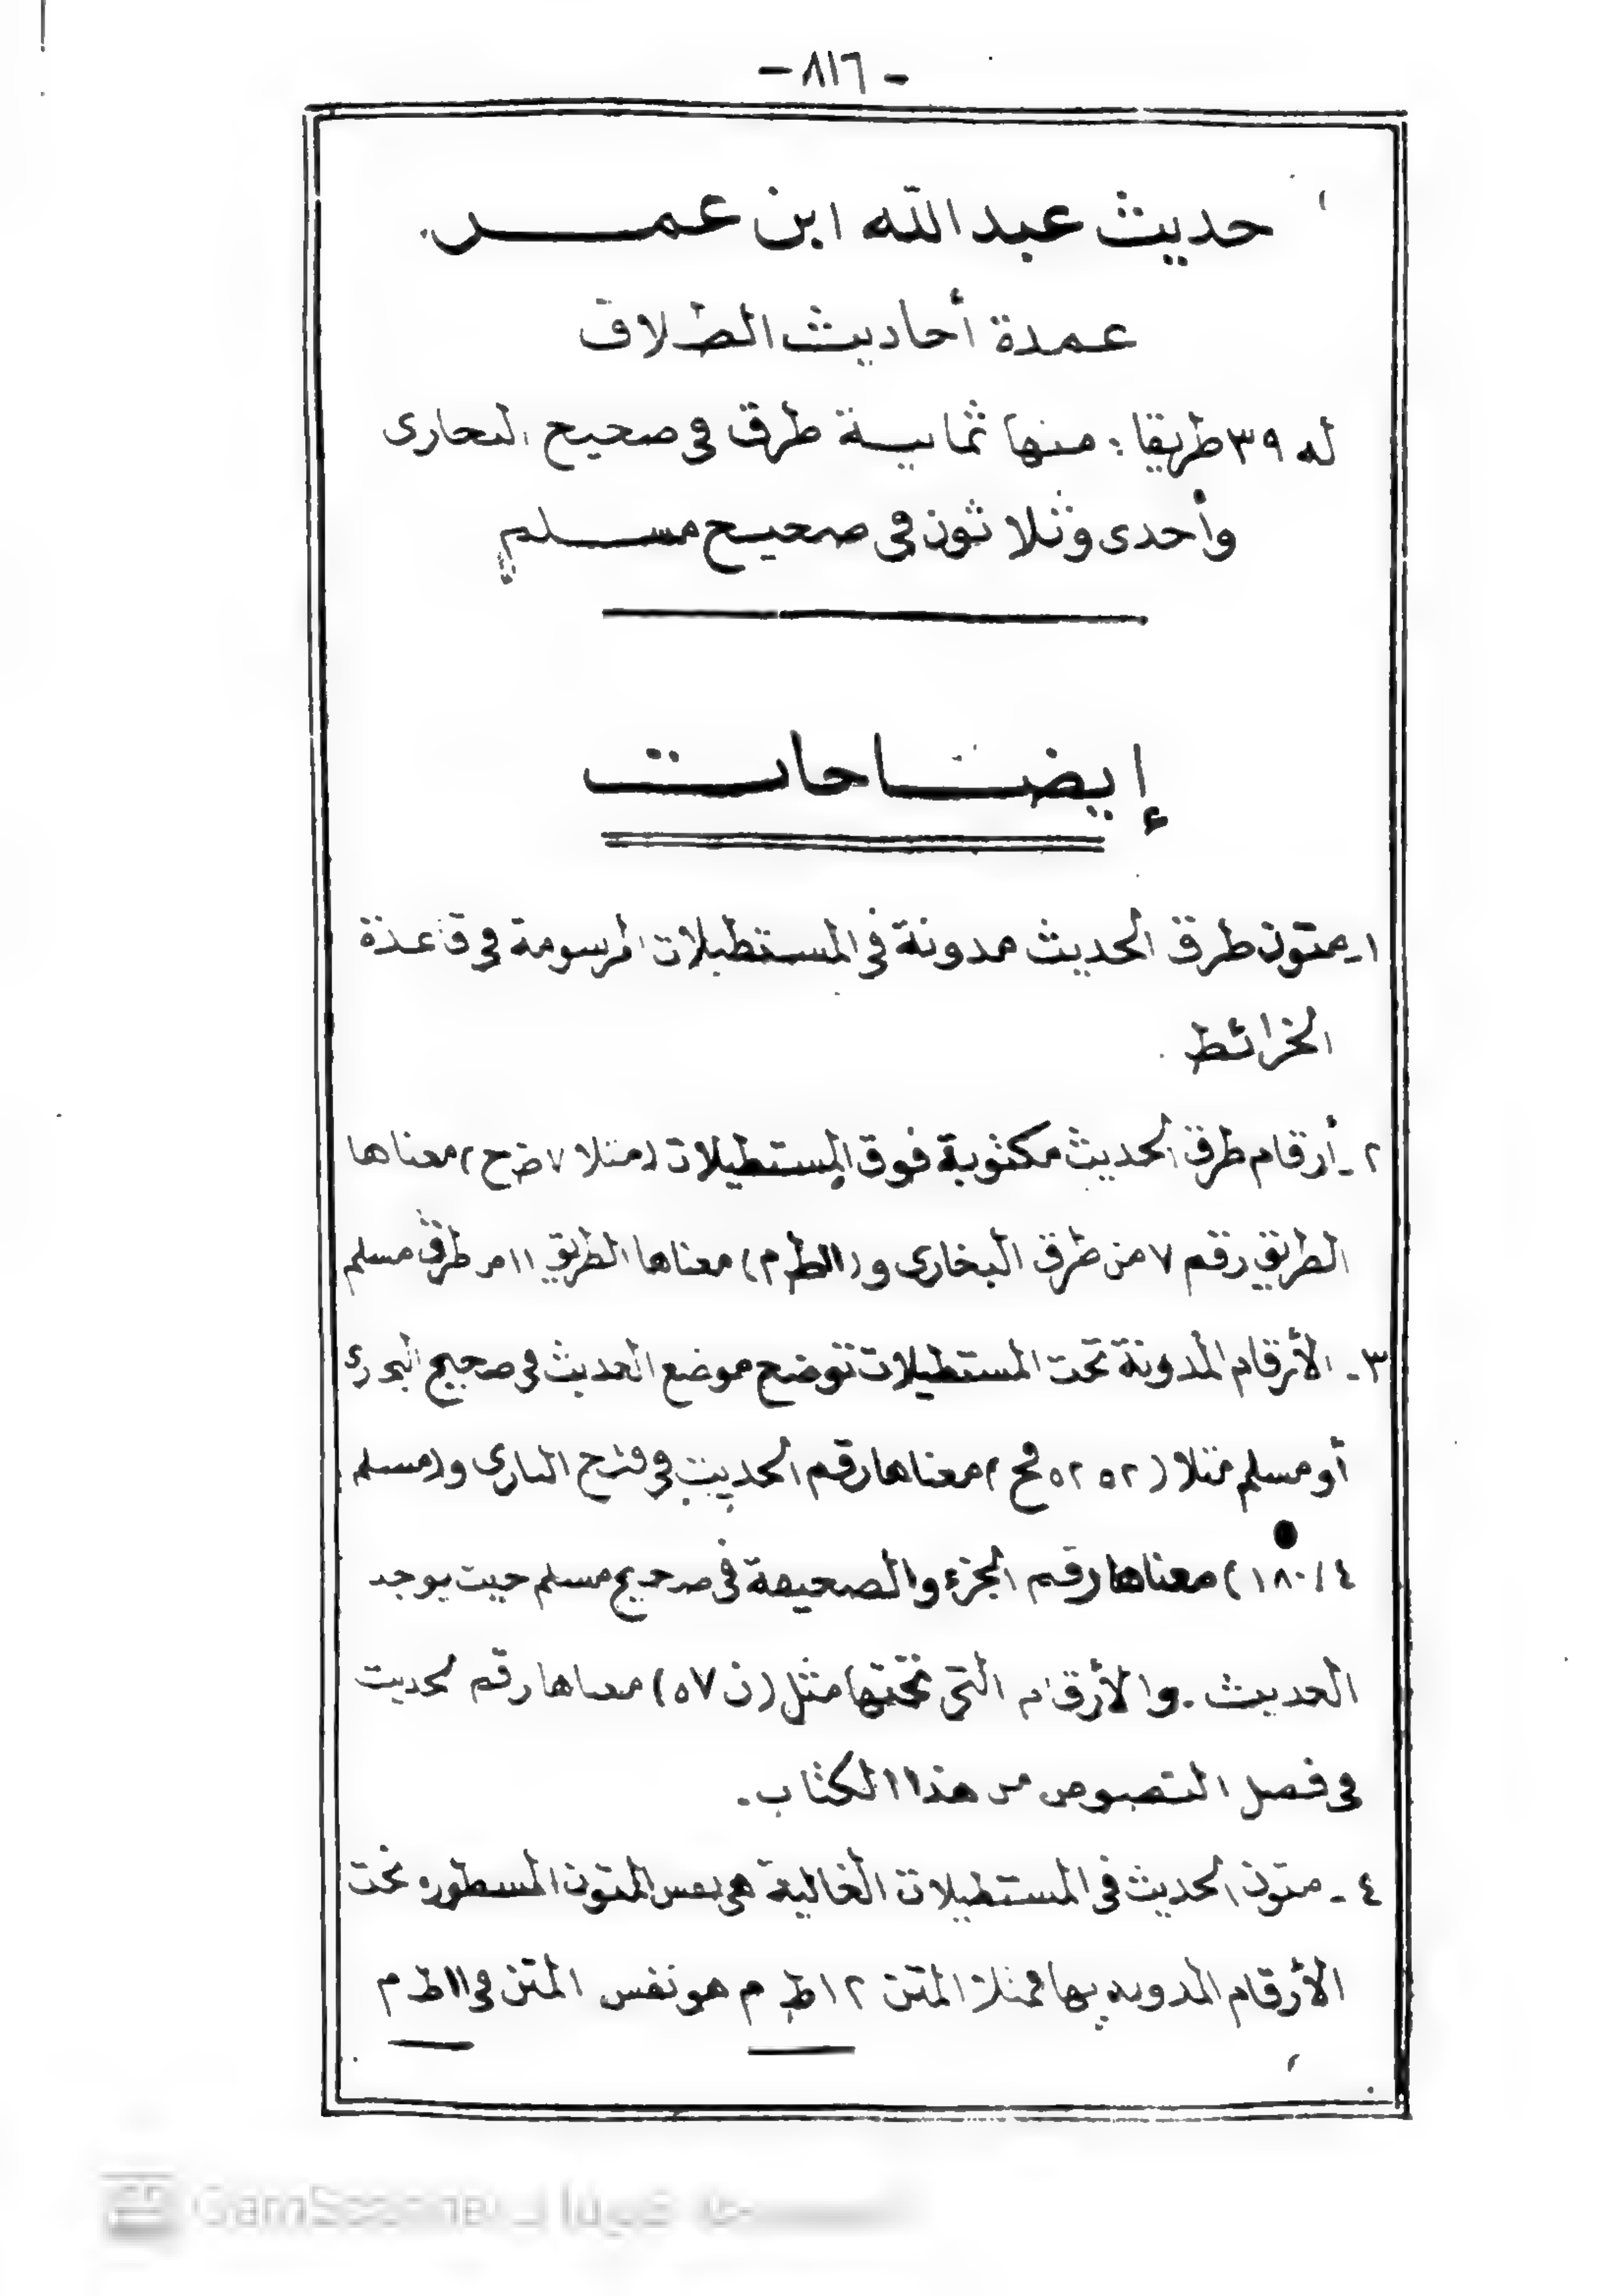 - ٨١٦ -
حديث عبد الله ابن عمر
عمدة أحاديث الطلاق
له ٣٩ طريقا : منها ثمانية طرق في صحيح البخاري
وأحدى وثلاثون في صحيح مسلم
إيضاحات
١ - متون طرق الحديث مدونة في المستطيلات المرسومة في قاعدة
الخرائط .
٢ - أرقام طرق الحديث مكتوبة فوق المستطيلات (مثلا ٧ ح) معناها
الطريق رقم ٧ من طرق البخاري و (١١ ط م) معناها الطريق ١١ من طرق مسلم
٣ - الأرقام المدونة تحت المستطيلات توضح موضع الحديث في صحيح البخاري
أو مسلم مثلا (٥٢٥٢ فح) معناها رقم الحديث في فتح الباري و (مسلم
٤ / ١٨٠) معناها رقم الجزء والصحيفة في صحيح مسلم حيث يوجد
الحديث . والأرقام التي تحتها مثل (ن ٥٧) معناها رقم الحديث
في فصل النصوص من هذا الكتاب .
٤ - متون الحديث في المستطيلات الخالية هي نفس المتون المسطوره تحت
الأرقام المدونه بها فمثلا المتن ١٢ ط م هو نفس المتن في ١١ ط م
CamScanner